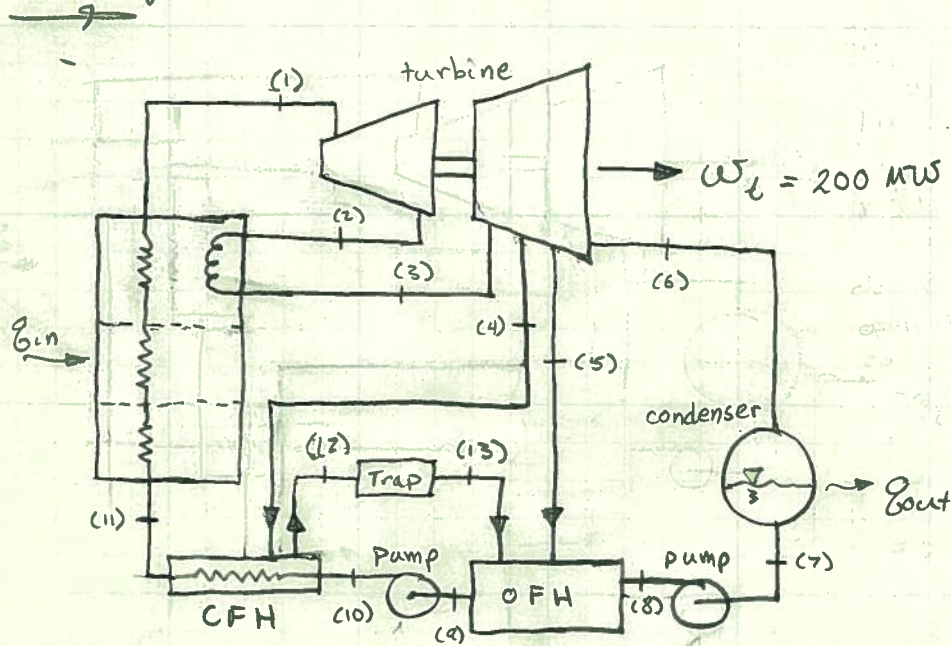 turbine
(1)
ẇt = 200 MW
(2)
(3)
(6)
(4)
(5)
qin
condenser
(12)
(13)
Trap
qout
(11)
pump
pump
(7)
CFH
(10)
(9)
OFH
(8)